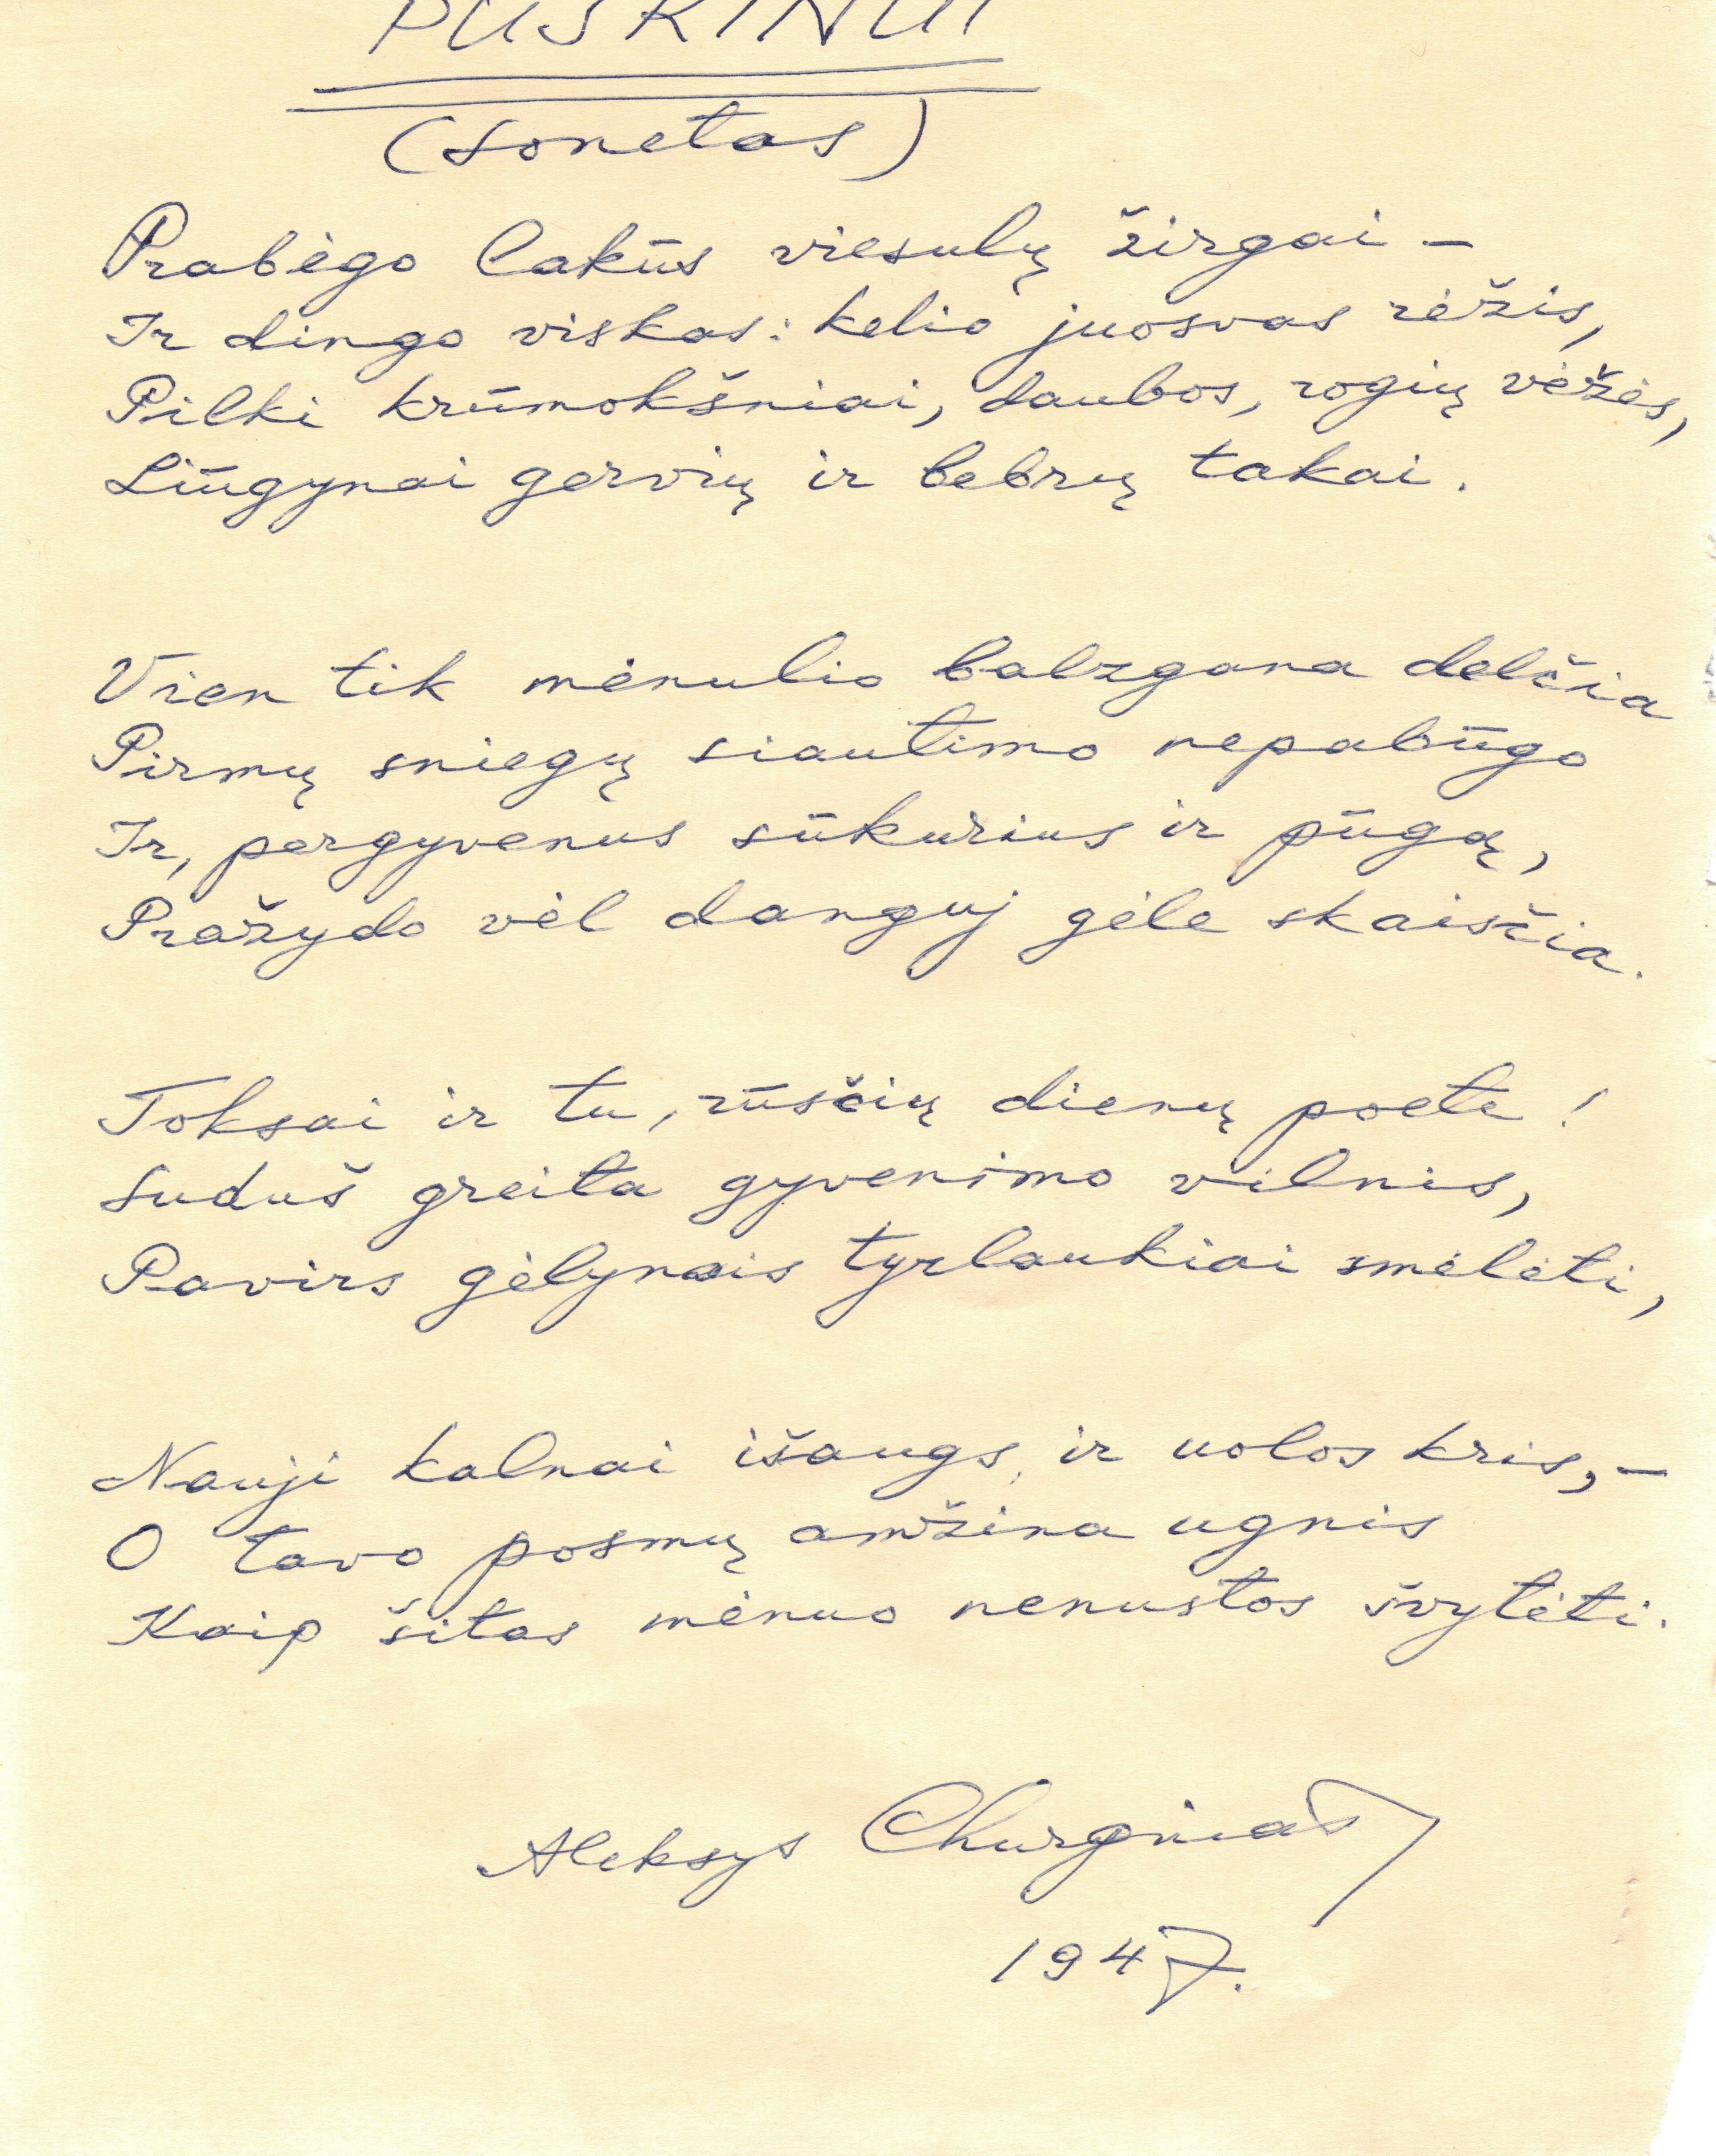 PUŠKINUI
(Sonetas)
Prabėgo lakūs viesulų žirgai –
Ir dingo viskas: kelio juosvas rėžis,
Pilki krūmokšniai, daubos, rogių vėžės,
Liūgynai gervių ir bebrų takai.
Vien tik mėnulio balzgana delčia
Pirmų sniegų siautimo nepabūgo
Ir, pergyvenus sūkurius ir pūgą,
Pražydo vėl danguj gėle skaisčia.
Toksai ir tu, rūsčių dienų poete!
Suduš greita gyvenimo vilnis,
Pavirs gėlynais tyrlaukiai smėlėti,
Nauji kalnai išaugs, ir uolos kris, –
O tavo posmų amžina ugnis
Kaip šitas mėnuo nenustos švytėti.
Aleksys Churginas
1947.